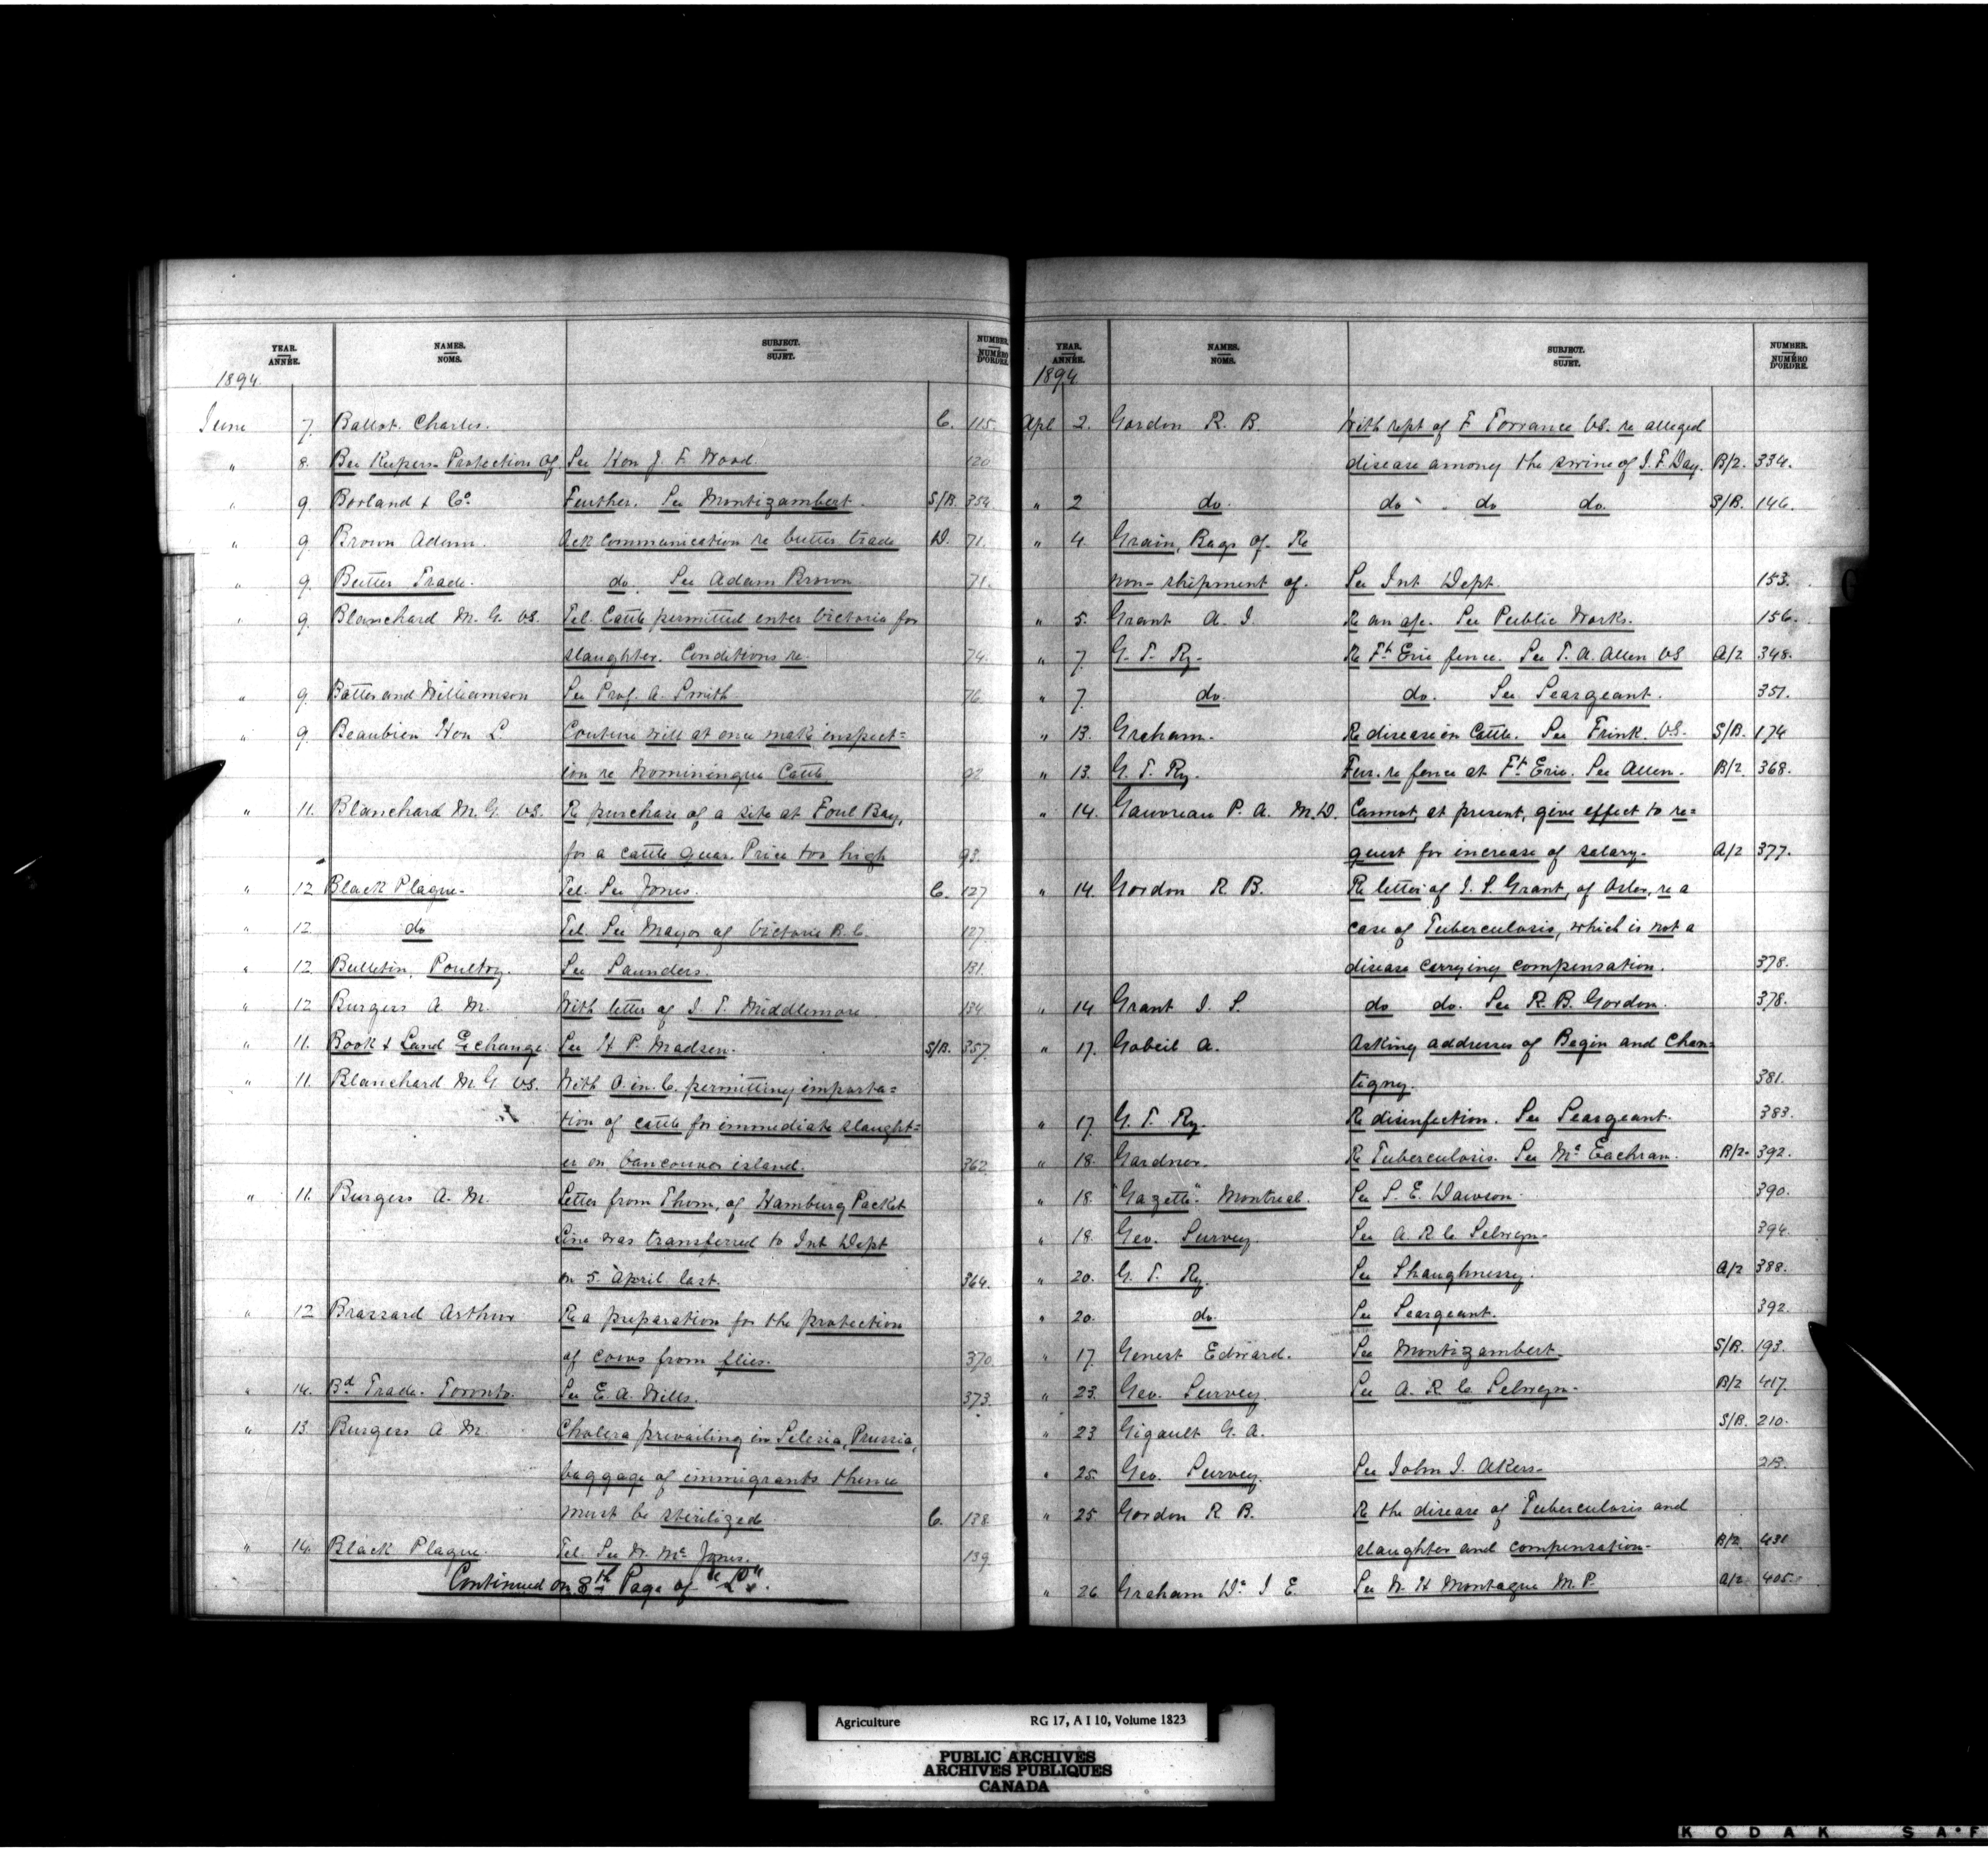 YEAR. ANNÉE. NAMES. NOMS. SUBJECT. SUJET. NUMBER. NUMÉRO D'ORDRE.
1894.
June 7. Ballot. Charles. C. 115.
" 8. Bee Keepers Protection of See Hon J. F. Wood. 120
" 9. Borland & Co. Further. See Montizambert. S/B. 354.
" 9. Brown Adam. Ack communication re butter trade D. 71.
" 9. Butter Trade. do. See Adam Brown 71.
" 9. Blanchard M. G. VS. Tel. Cattle permitted enter Victoria for
slaughter. Conditions re. 74.
" 9. Batter and Williamson See Prof. A. Smith 76.
" 9. Beaubien Hon L. Couture will at once make inspect=
ion re Nominingue Cattle 92.
" 11. Blanchard M. G. VS. Re purchase of a site at Foul Bay,
for a cattle quar. Price too high 93.
" 12 Black Plague. Tel. See Jones. C. 127
" 12 do Tel. See Mayor of Victoria B.C. 127.
" 12 Bulletin, Poultry. See Saunders. 131.
" 12 Burgess A. M. With letter of J. T. Middlemore 134.
" 11. Book & Land Exchange. See H. P. Madsen. S/B. 357.
" 11. Blanchard M. G. VS. With O. in. C. permitting importa=
tion of cattle for immediate slaught=
er on Vancouver island. 362.
" 11. Burgess A. M. Letter from Thom, of Hamburg Packet
Line was transferred to Int Dept
on 5. April last. 364.
" 12 Brassard Arthur Re a preparation for the protection
of cows from flies. 370.
" 14. Bd Trade. Toronto. See E. A. Wills. 373.
" 13. Burgess A. M. Cholera prevailing in Silesia, Prussia,
baggage of immigrants thence
must be sterilized. C. 138.
" 14. Black Plague. Tel. See N. Mc Jones. 139.
Continued on 8th Page of "L".
YEAR. ANNÉE. NAMES. NOMS. SUBJECT. SUJET. NUMBER. NUMÉRO D'ORDRE.
1894
Apl 2. Gordon R. B. With rept of F Torrance VS. re alleged
disease among the swine of J. F. Day. B/2. 334.
" 2 do. do do do. S/B. 146.
" 4. Grain, Bags of. Re
non-shipment of. See Int Dept. 153.
" 5. Grant A. J. Re an a/c. See Public Works. 156.
" 7. G. T. Ry. Re Ft Erie fence. See T. A. Allen VS A/2 348.
" 7. do. do. See Seargeant. 351.
" 13. Graham. Re disease in Cattle. See Frink. VS. S/B. 174
" 13. G. T. Ry. Fur. re fence at Ft Erie. See Allen. B/2. 368.
" 14. Gauvreau P. A. M.D. Cannot, at present, give effect to re=
quest for increase of salary. A/2 377.
" 14. Gordon R. B. Re letter of J. S. Grant, of Osler, re a
case of Tuberculosis, which is not a
disease carrying compensation. 378.
" 14 Grant J. S. do do. See R. B. Gordon. 378.
" 17. Gobeil A. Asking addresses of Begin and Chan=
tigny. 381.
" 17. G. T. Ry. Re disinfection. See Seargeant. 383.
" 18. Gardner. Re Tuberculosis. See Mc Eachran. B/2. 392.
" 18 "Gazette". Montreal. See S. E. Dawson. 390.
" 18. Geo. Survey. See A. R. C. Selwyn. 394.
" 20. G. T. Ry. See Shaughnessy. A/2 388.
" 20. do. See Seargeant. 392.
" 17. Genest Edward. See Montizambert. S/B. 193.
" 23. Geo. Survey. See A. R C. Selwyn. B/2 417.
" 23 Gigault G. A. S/B. 210.
" 25. Geo. Survey. See John J. Akers. 213.
" 25. Gordon R B. Re the disease of Tuberculosis and
slaughter and compensation. B/2. 431
" 26 Graham Dr J E. See W. H Montague M.P. A/2 405.
Agriculture RG 17, A I 10, Volume 1823
PUBLIC ARCHIVES
ARCHIVES PUBLIQUES
CANADA
KODAK SA•F